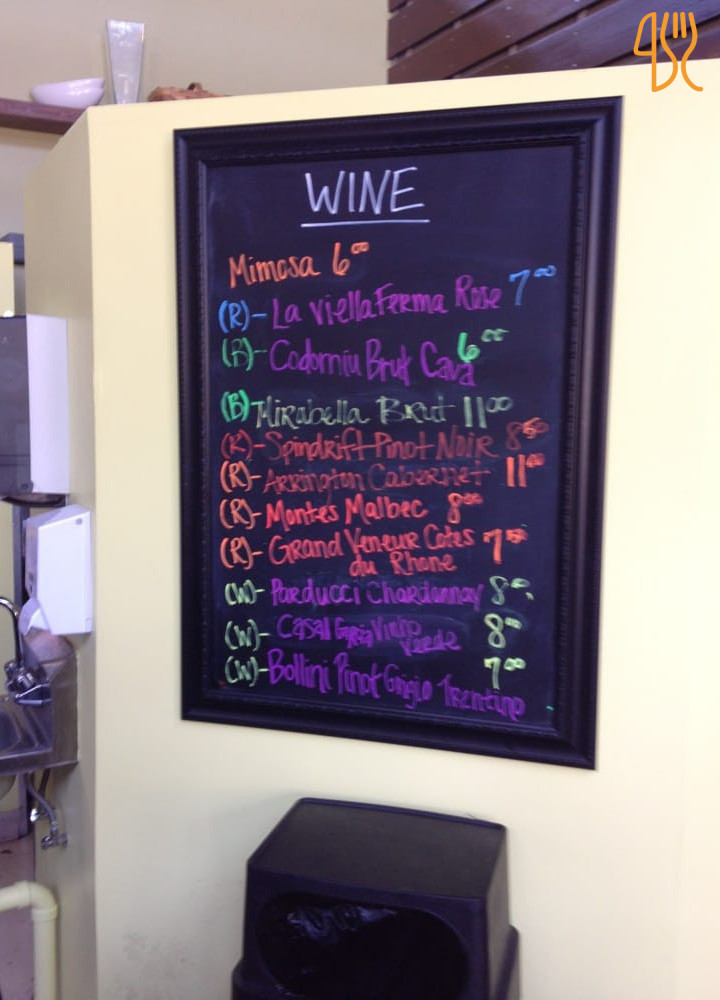 WINE
Mimosa 6⁰⁰
(R)- La Viella Ferma Rose 7⁰⁰
(B)- Codorniu Brut Cava 6⁰⁰
(B) Mirabella Brut 11⁰⁰
(R)- Spindrift Pinot Noir 8⁵⁰
(R)- Arrington Cabernet 11⁰⁰
(R)- Montes Malbec 8⁰⁰
(R)- Grand Veneur Cotes 7⁵⁰
du Rhone
(W)- Parducci Chardonnay 8⁰⁰
(W)- Casal Garcia Vinho 8⁰⁰
Verde
(W)- Bollini Pinot Grigio Trentino 7⁰⁰